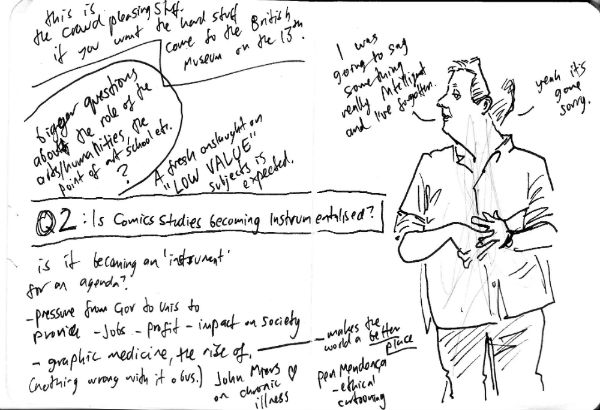 this is
the crowd pleasing stuff.
if you want the hard stuff
come to the British
Museum on the 13th.
bigger questions
about the role of the
arts/humanities, the
point of art school etc.
?
A fresh onslaught on
"LOW VALUE"
subjects is
expected.
I was
going to say
something
really intelligent
and I've forgotten.
yeah it's
gone
sorry.
Q2: Is Comics Studies becoming Instrumentalised?
is it becoming an 'instrument'
for an agenda?
- pressure from Gov to unis to
provide - Jobs - profit - impact on society
- graphic medicine, the rise of.
(nothing wrong with it obvs.)
- makes the
world a better
place
John Miers
on chronic
illness
Pen Mendonça
- ethical
cartooning